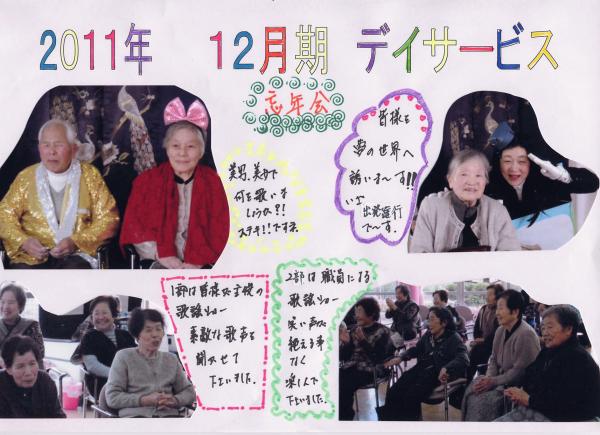 2011年 12月期 デイサービス
忘年会
皆様を
夢の世界へ
誘いま〜す!!
いざ
出発進行
で〜す。
美男、美女で
何を歌いま
しょうか?!
ステキ!!ですネ
1部は皆様が主役の
歌謡ショー
素敵な歌声を
聞かせて
下さいました。
2部は職員による
歌謡ショー
笑い声は
絶える事
なく
楽しんで
下さいました。